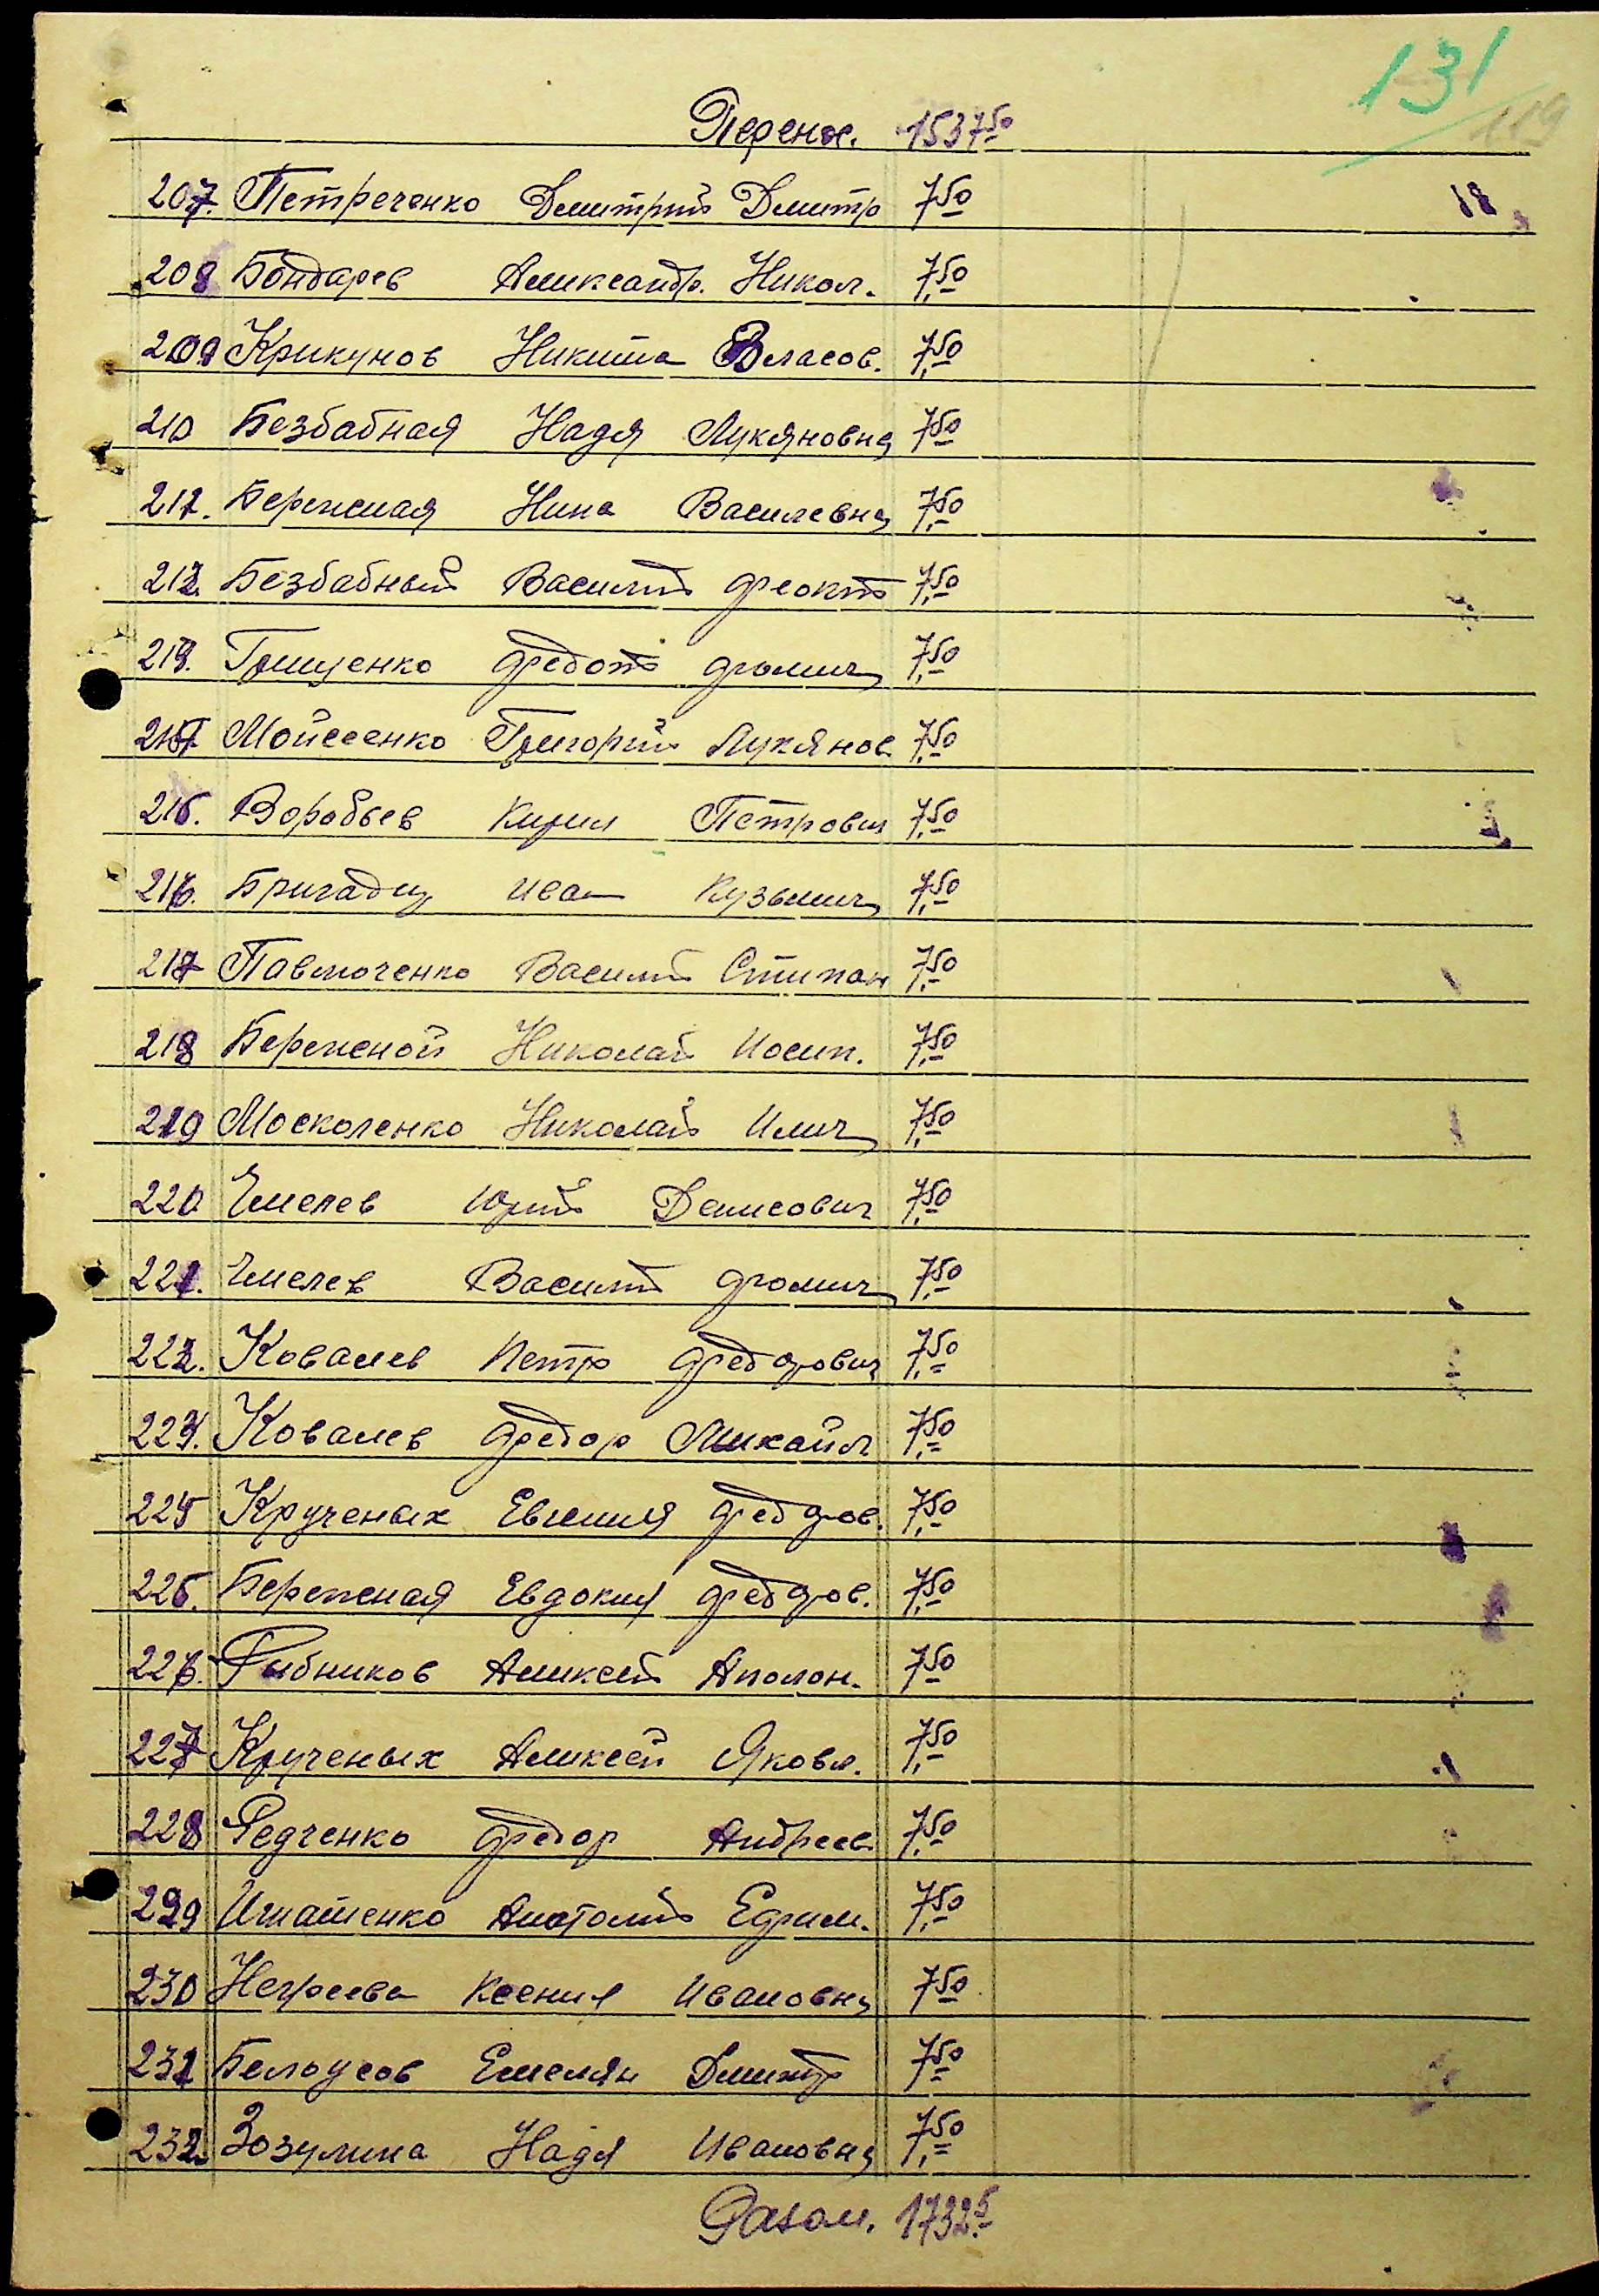 131
119
Перенос. 1537 50
18
207. Петреченко Дмитрий Дмитр 7,50
208 Бондарев Аликсандр. Никол. 7,50
209 Крикунов Никита Власов. 7,50
210 Безбабная Надя Лукяновна 7,50
211. Бережная Нина Василевна 7,50
212. Безбабный Василий Феокт 7,50
213. Грищенко Федот Фомич 7,50
214 Мойсеенко Григорий Лукянов 7,50
215. Воробьев Кирил Петрович 7,50
216. Бригадир Иван Кузьмич 7,50
217 Павлюченко Василий Стипан 7,50
218 Бережной Николай Иосип. 7,50
219 Москоленко Николай Илич 7,50
220 Емелев Юрий Денисович 7,50
221. Емелев Василий Фомич 7,50
222. Ковалев Петр Федорович 7,50
223. Ковалев Федор Михайл 7,50
224 Крученых Евгения Федоров. 7,50
225. Бережная Евдокия Федоров. 7,50
226. Рыбников Аликсей Аполон. 7,50
227 Крученых Аликсей Яковл. 7,50
228 Редченко Федор Андреев 7,50
229 Игнатенко Анатолий Ефим. 7,50
230 Негреева Ксения Ивановна 7,50
231 Белоусов Емелян Дмитр 7,50
232. Зозулина Надя Ивановна 7,50
Разом. 1732.5